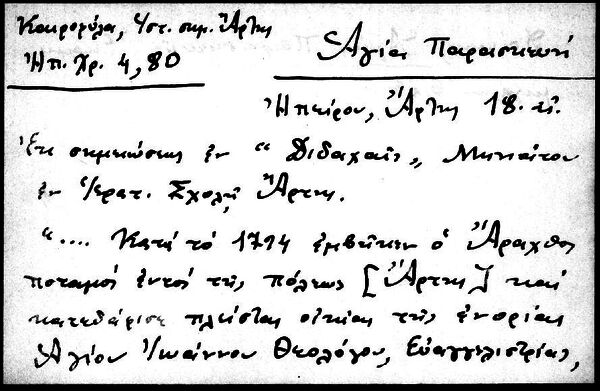 Κακρομύλα, Ὑστ. σημ. Ἄρτης
Ἠπ. Χρ. 4, 80
Ἁγία Παρασκευή
Ἠπείρου, Ἄρτης 18. αἰ.
Ἐκ σημειώσεως ἐν "Διδαχαῖς„ Μηνιάτου
ἐν Ἱερατ. Σχολῇ Ἄρτης.
".... Κατά τό 1794 ἐμβῆκεν ὁ Ἄραχθος
ποταμός ἐντός τῆς πόλεως [Ἄρτης] καί
κατεδάφισε πλείστας οἰκίας τῆς ἐνορίας
Ἁγίου Ἰωάννου Θεολόγου, Εὐαγγελιστρίας,